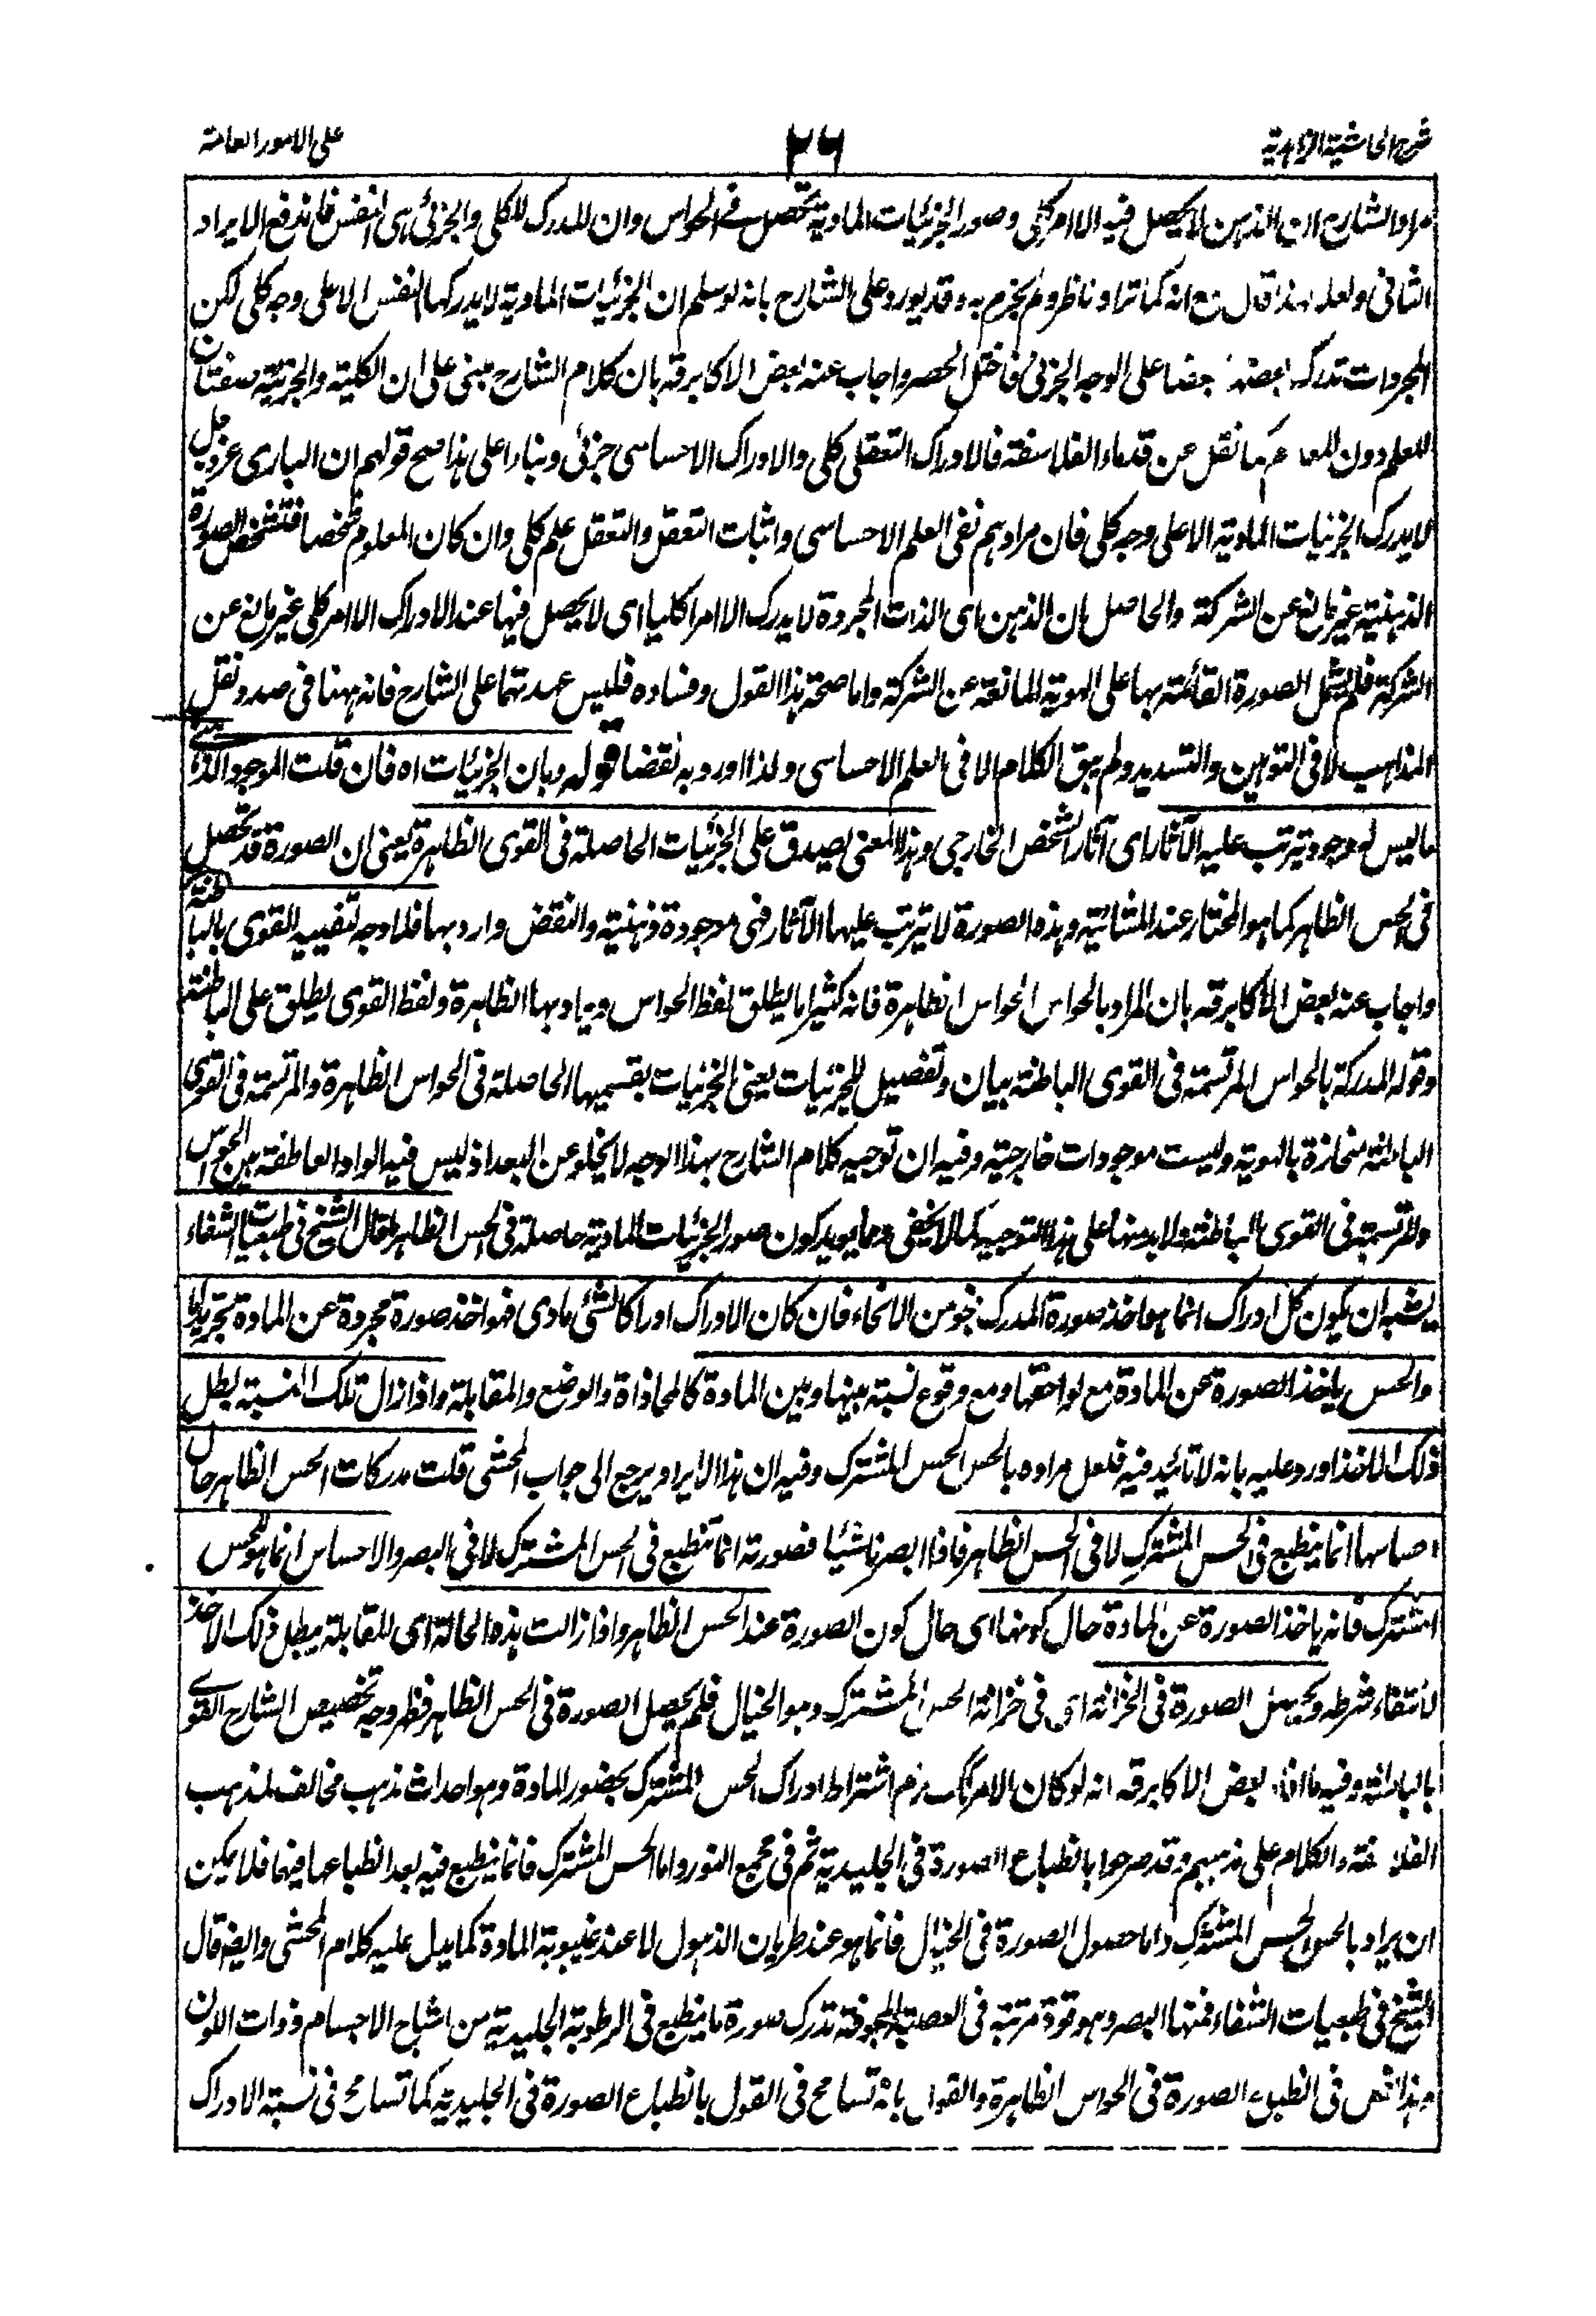 شرح الحاشية الزاهدية
٢٦
على الامور العامة
مراد الشارح ان الذهن لا يحصل فيه الا امر كلى وصور الجزئيات المادية تحصل فى الحواس وان المدرك للكلى والجزئى هى النفس فاندفع الايراد
الثانى ولعله لهذا قال مع انه كما تراه ناظر ولم يجزم به وقد يورد على الشارح بانه لو سلم ان الجزئيات المادية لا يدركها النفس الا على وجه كلى لكن
المجردات تدرك بعضها بعضا على الوجه الجزئى فاختل الحصر واجاب عنه بعض الاكابر قه بان كلام الشارح مبنى على ان الكلية والجزئية صفتان
للعلم دون المعلوم كما نقل عن قدماء الفلاسفة فالادراك التعقلى كلى والادراك الاحساسى جزئى وبناء على هذا صح قولهم ان البارى عز وجل
لا يدرك الجزئيات المادية الا على وجه كلى فان مرادهم نفى العلم الاحساسى واثبات التعقل والتعقل علم كلى وان كان المعلوم شخصا فتشخص الصورة
الذهنية غير مانع عن الشركة والحاصل ان الذهن اى الذات المجردة لا يدرك الا امرا كليا اى لا يحصل فيها عند الادراك الا امر كلى غير مانع عن
الشركة فلم يشمل الصورة القائمة بها على الهوية المانعة عن الشركة واما صحة هذا القول وفساده فليس عهدتهما على الشارح فانه ههنا فى صدد نقل
المذاهب لا فى التوهين والتسديد ولم يبق الكلام الا فى العلم الاحساسى ولذا اورد به نقضا قوله وبان الجزئيات اه فان قلت الموجود الذهنى
ما ليس له وجود يترتب عليه الآثار اى آثار الشخص الخارجى وهذا المعنى يصدق على الجزئيات الحاصلة فى القوى الظاهرة يعنى ان الصورة قد تحصل
فى الحس الظاهر كما هو المختار عند المشائية وهذه الصورة لا يترتب عليها الآثار فهى موجودة ذهنية والنقض وارد بها فلما وجه تقييد القوى بالباطنة
واجاب عنه بعض الاكابر قه بان المراد بالحواس الحواس الظاهرة فانه كثيرا ما يطلق لفظ الحواس ويراد بها الظاهرة ولفظ القوى يطلق على الباطنة
وقوله المدركة بالحواس المرتسمة فى القوى الباطنة بيان وتفصيل للجزئيات يعنى الجزئيات بقسميها الحاصلة فى الحواس الظاهرة والمرتسمة فى القوى
الباطنة منحازة بالهوية وليست موجودات خارجية وفيه ان توجيه كلام الشارح بهذا الوجه لا يخلو عن البعد اذ ليس فيه الواو العاطفة بين الحواس
والمرتسمة فى القوى الباطنة ولا بد منها على هذا التوجيه كما لا يخفى ومما يويد كون صور الجزئيات المادية حاصلة فى الحس الظاهر ما قال الشيخ فى طبعيات الشفاء
يشبه ان يكون كل ادراك انما هو اخذ صورة المدرك بنحو من الانحاء فان كان الادراك ادراكا لشئ مادى فهو اخذ صورة مجردة عن المادة تجريدا ما
والحس ياخذ الصورة عن المادة مع لواحقها ومع وقوع نسبة بينها وبين المادة كالمحاذاة والوضع والمقابلة واذا زال تلك النسبة بطل
ذلك الماخذ اورد عليه بانه لا تائيد فيه فلعل مراده بالحس الحس المشترك وفيه ان هذا الايراد يرجع الى جواب المحشى قلت مدركات الحس الظاهر حال
احساسها انما ينطبع فى الحس المشترك لا فى الحس الظاهر فاذا ابصرنا شيئا فصورته انما تنطبع فى الحس المشترك لا فى البصر والاحساس انما هو للحس
المشترك فانه ياخذ الصورة عن المادة حال كونها اى حال كون الصورة عند الحس الظاهر واذا زالت هذه الحالة اى المقابلة يبطل ذلك الاخذ
لانتفاء شرطه ويحصل الصورة فى الخزانة اى فى خزانة الحس المشترك وهو الخيال فلم يحصل الصورة فى الحس الظاهر فظهر وجه تخصيص الشارح القوى
بالباطنة وفيه ما افاد بعض الاكابر قه انه لو كان الامر كك لزم اشتراط ادراك الحس المشترك بحضور المادة وهو احداث مذهب مخالف لمذهب
الفلاسفة والكلام على مذهبهم وقد صرحوا بانطباع الصورة فى الجليدية ثم فى مجمع النور واما الحس المشترك فانما ينطبع فيه بعد انطباعها فيهما فلا يمكن
ان يراد بالحس الحس المشترك واما حصول الصورة فى الخيال فانما هو عند طريان الذهول لا عند غيبوبة المادة كما يدل عليه كلام المحشى وايضا قال
الشيخ فى طبعيات الشفاء فمنها البصر وهو قوة مرتبة فى العصبة المجوفة تدرك صورة ما ينطبع فى الرطوبة الجليدية من اشباح الاجسام ذوات اللون
وهذا نص فى انطباع الصورة فى الحواس الظاهرة والقول بانه تسامح فى القول بانطباع الصورة فى الجليدية كما تسامح فى نسبة الادراك